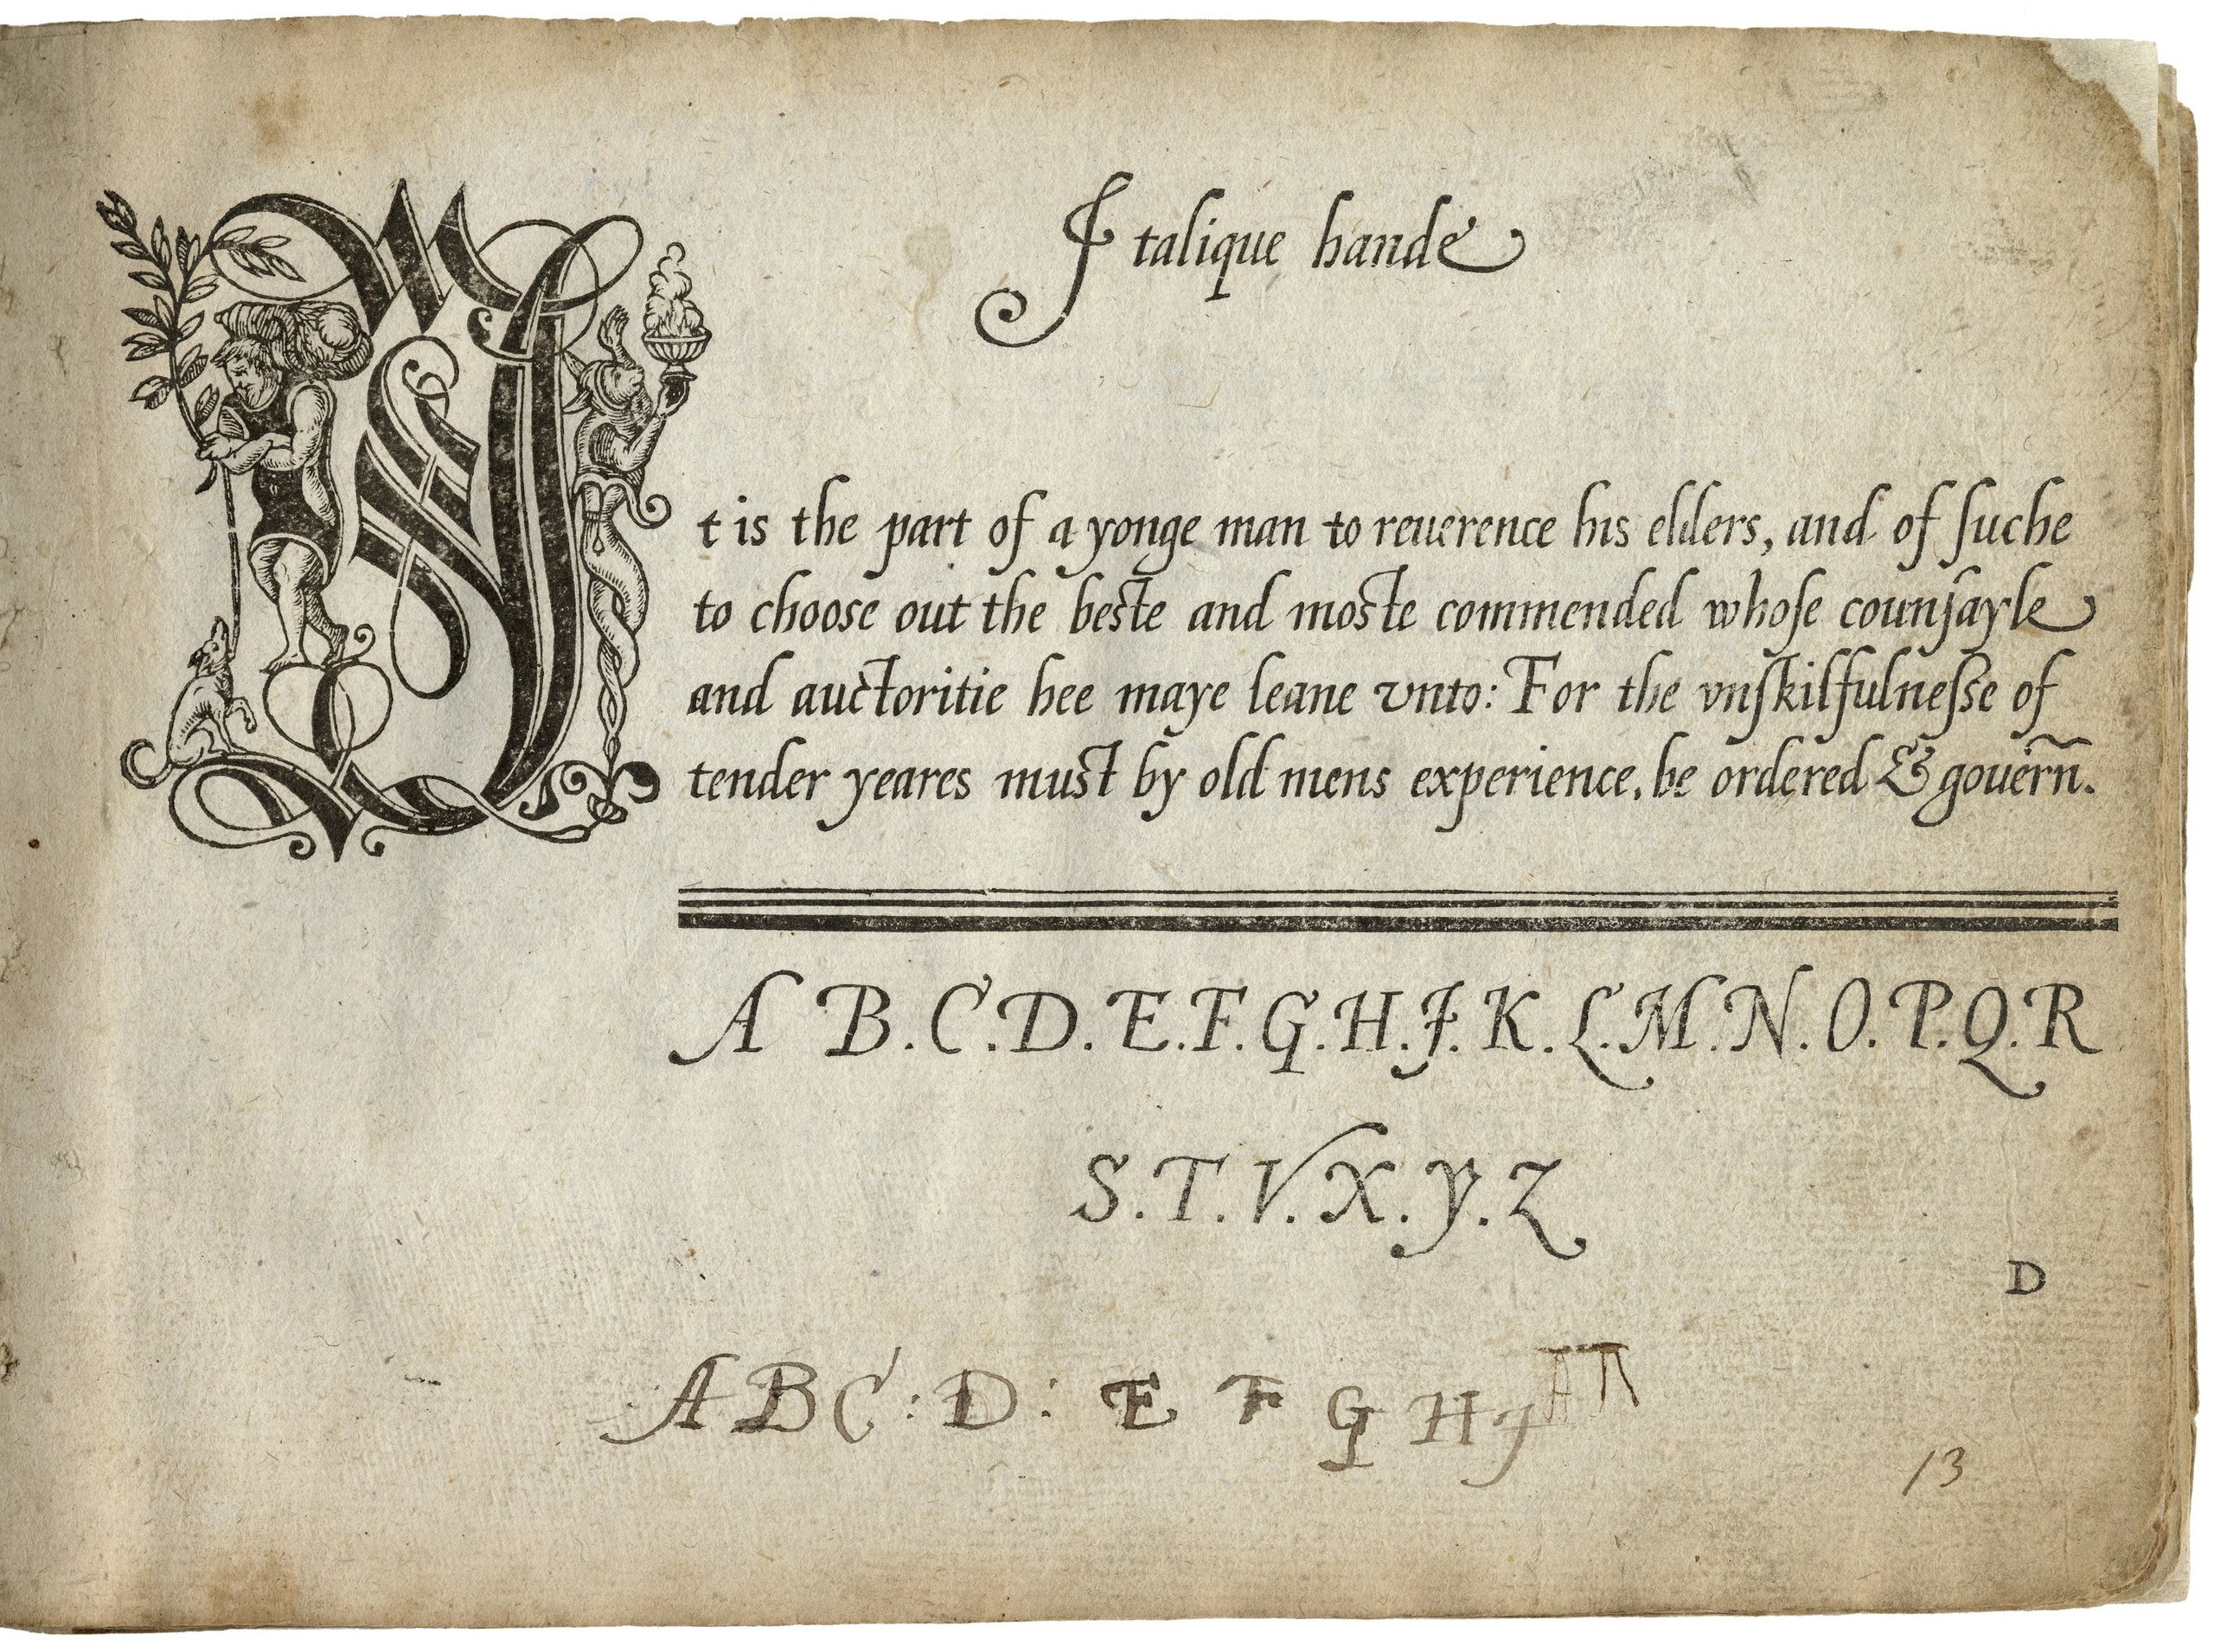 Italique hande
It is the part of a yonge man to reuerence his elders, and of ſuche
to chooſe out the beſte and moſte commended whoſe counſayle
and auctoritie hee maye leane vnto: For the vnſkilfulneſſe of
tender yeares muſt by old mens experience. be ordered & gouern̄.
A B. C. D. E. F. G. H. I. K. L. M. N. O. P. Q. R
S. T. V. X. Y. Z
D
A B C : D : E F G H I
13